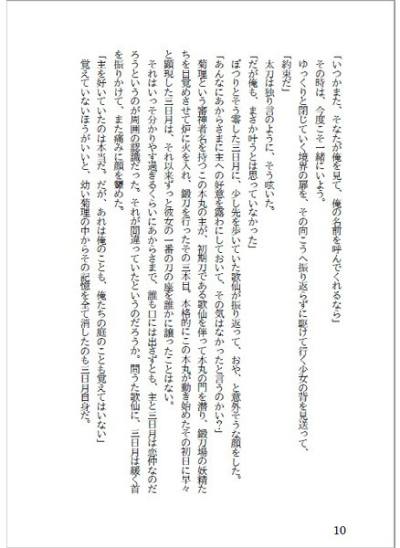 「いつかまた、そなたが俺を見て、俺の名前を呼んでくれるなら」
その時は、今度こそ一緒にいよう。
ゆっくりと閉じていく境界の扉を、その向こうへ振り返らずに駆けて行く少女の背を見送って、
太刀は独り言のように、そう呟いた。
「約束だ」
「だが俺も、まさか叶うとは思っていなかった」
ぽつりとそう零した三日月に、少し先を歩いていた歌仙が振り返って、おや、と意外そうな顔をした。
「あんなにあからさまに主への好意を露わにしておいて、その気はなかったと言うのかい？」
菊理という審神者名を持つこの本丸の主が、初期刀である歌仙を伴って本丸の門を潜り、鍛刀場の妖精た
ちを目覚めさせて炉に火を入れ、鍛刀を行ったその三本目。本格的にこの本丸が動き始めたその初日に早々
と顕現した三日月は、それ以来ずっと彼女の一番の刀の座を誰かに譲ったことはない。
それはいっそ分かりやす過ぎるくらいにあからさまで、誰も口には出さずとも、主と三日月は恋仲なのだ
ろうというのが周囲の認識だった。それが間違っていたというのだろうか。問うた歌仙に、三日月は緩く首
を振りかけて、また痛みに顔を顰めた。
「主を好いていたのは本当だ。だが、あれは俺のことも、俺たちの庭のことも覚えてはいない」
覚えていないほうがいいと、幼い菊理の中からその記憶を全て消したのも三日月自身だ。
10